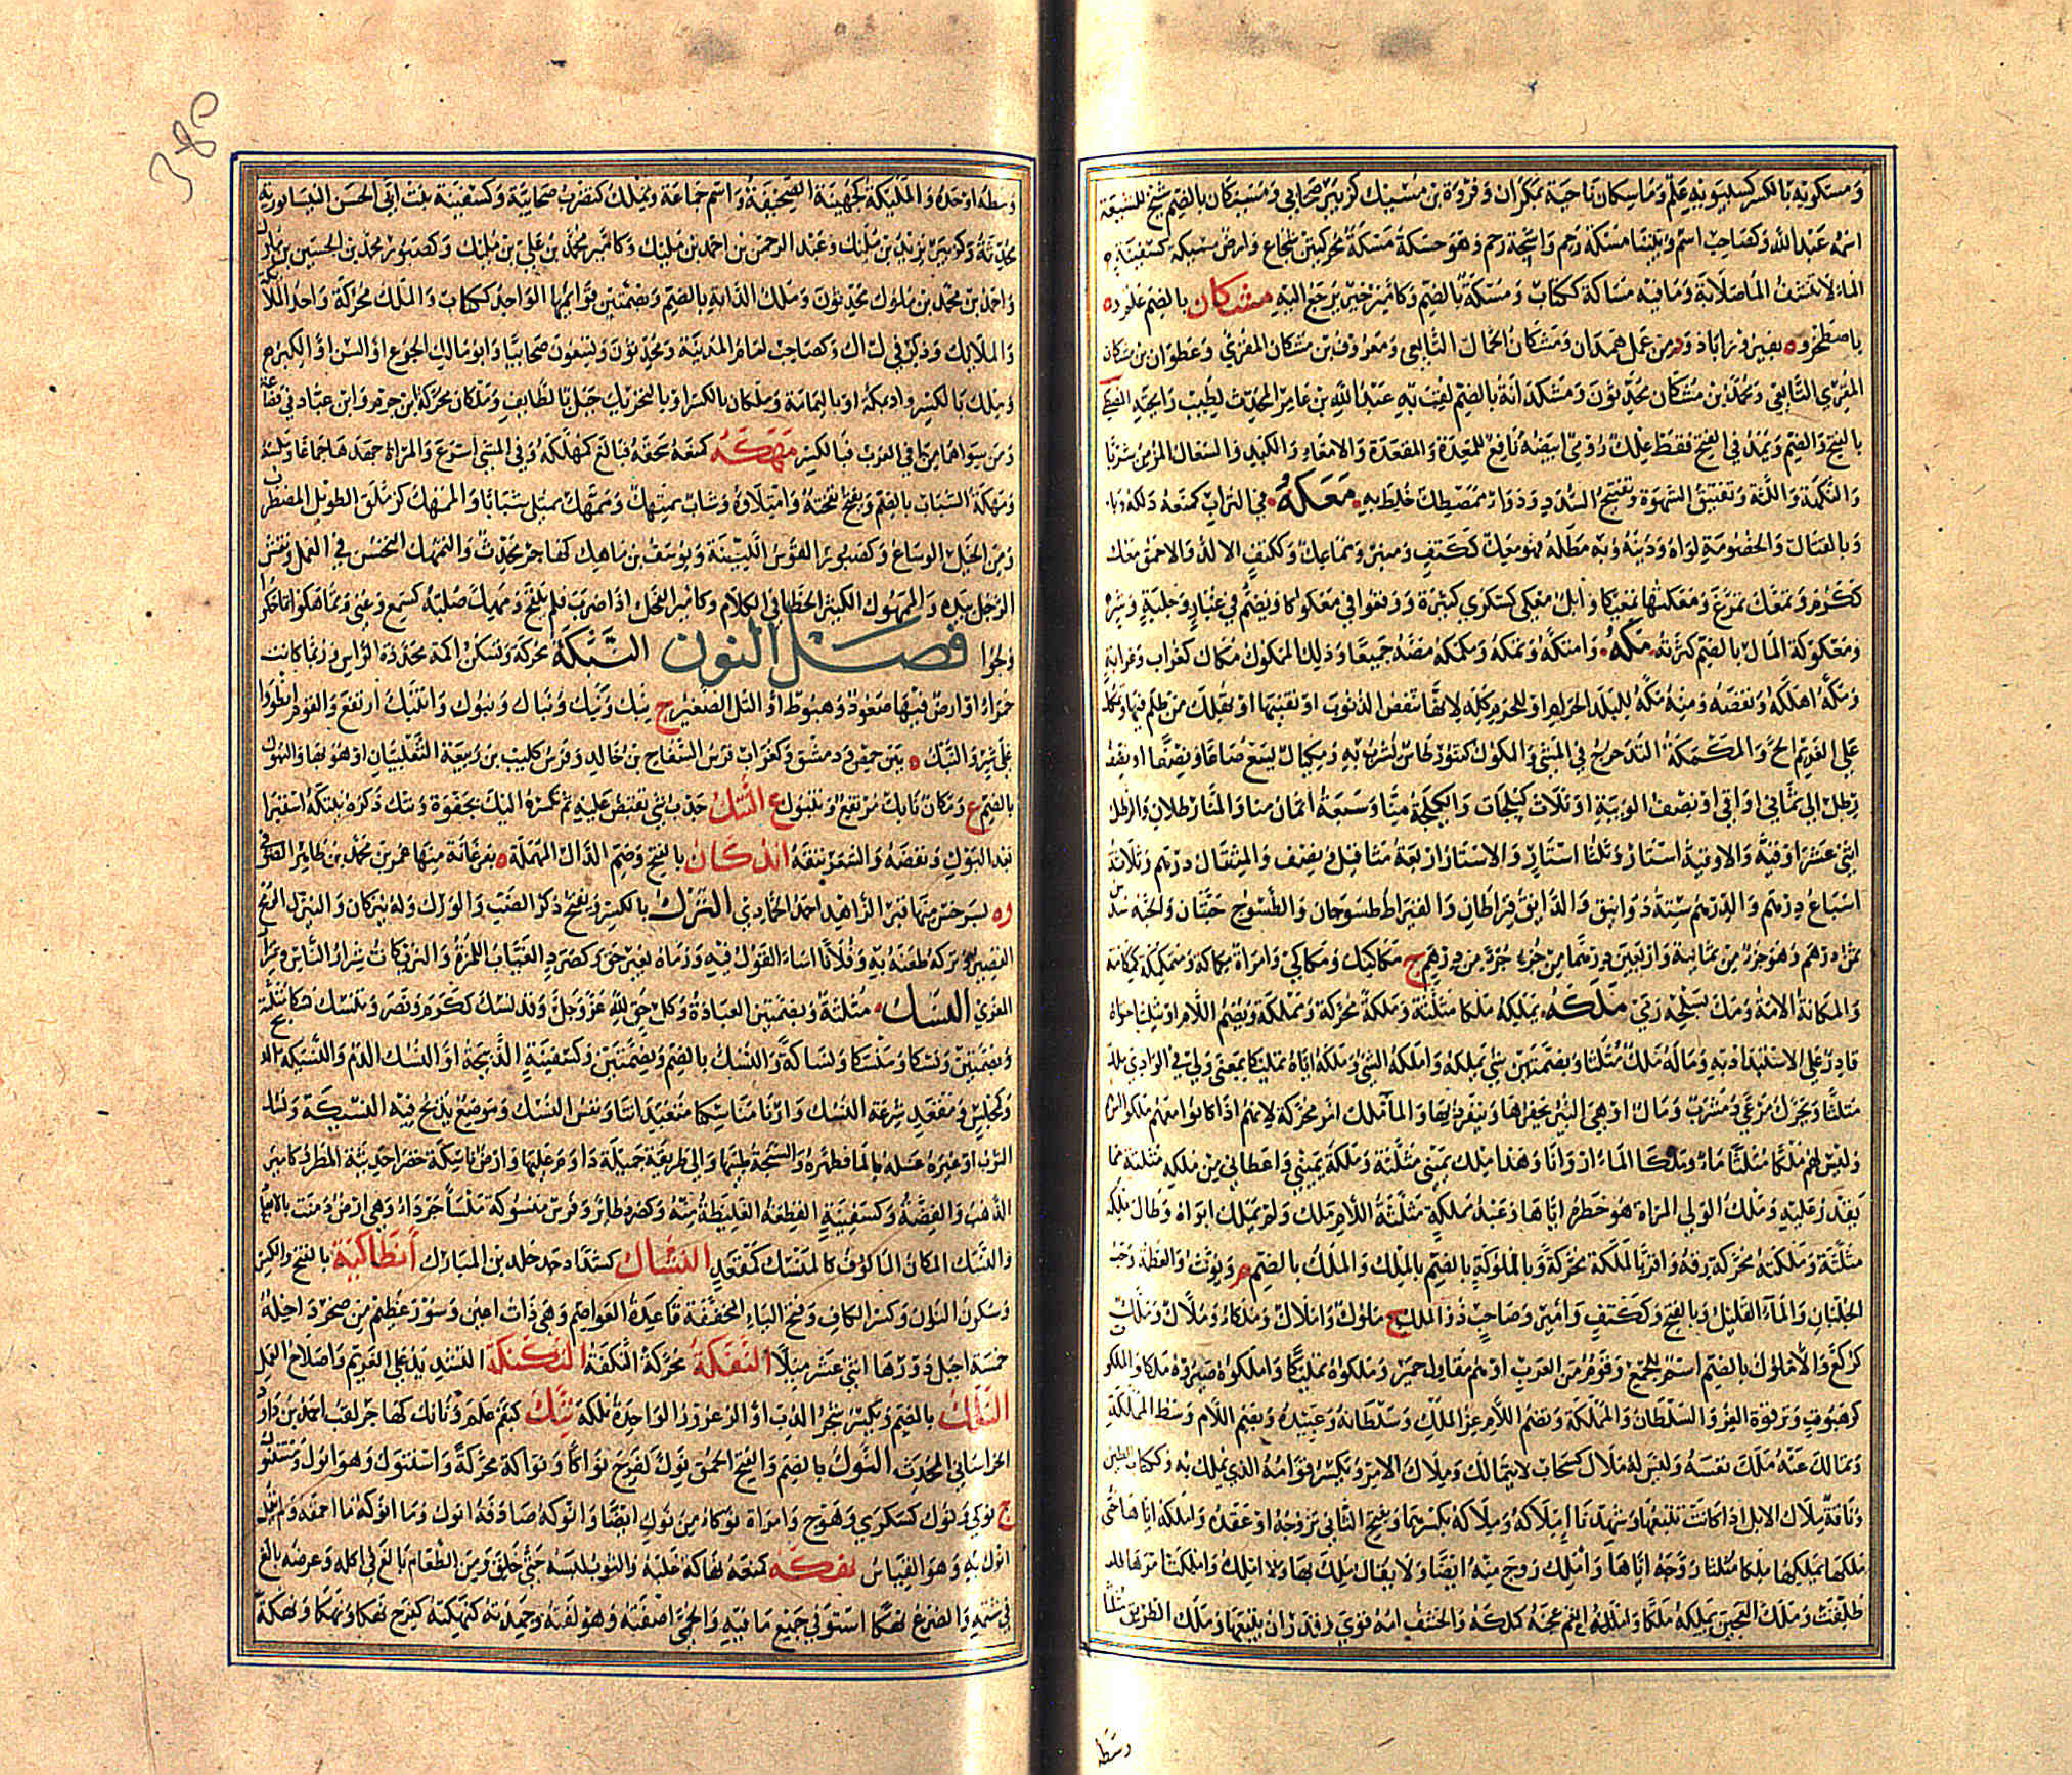 ومسكويه بالكسر كسيبويه علم وماسكان ناحية بمكران وفروة بن مسيك كزبير صحابي ومسيكان بالضم شيخ للشيعة
اسمه عبد الله وكصاحب اسم وبيننا ماسكة رحم واشجة رحم وهو حسكة مسكة محركتين شجاع وارض مسيكة كسفينة
الماء لا تنشف الماء صلابة وما فيه مساكة ككتاب ومسكة بالضم وكامير خير يرجع اليه مشكان بالضم علم وه
باصطخر وه بفيروزاباذ ود من عمل همدان ومشكان الحمال التابعي ومعروف بن مشكان المقرئ وعطوان بن مشكان
التابعي ومحمد بن مشكان محدثون ومشكدانة بالضم لقب به عبد الله بن عامر المحدث لطيب رايحته
بالفتح والضم ويمد في الفتح فقط علك رومي ابيضه نافع للمعدة والمقعدة والامعاء والكبد والسعال المزمن شربا
والنكهة واللثة وتفتيق الشهوة وتفتيح السدد ودواء ممصطك خلط به معكه في التراب كمنعه دلكه
وبالقتال والخصومة لواه ودينه وبه مطله فهو معك ككتف ومنبر ومماعك وككتف الالد والاحمق معك
ككرم وتمعك تمرغ ومعكتها تمعيكا وابل معكى كسكرى كثيرة ووقعوا في معكوكا ويضم في غبار وجلبة وشر
ومعكوكة المال بالضم كثرته مكه وامتكه وتمكه ومكمكه مصه جميعا وذلك الممكوك مكاك كغراب وغرابة
ومكه اهلكه ونقصه ومنه مكة للبلد الحرام او للحرم كله لانها تنقص الذنوب او تفنيها او تهلك من ظلم فيها
على الغريم الح والمكمكة التدحرج في المشي والمكوك كتنور طاس يشرب به ومكيال يسع صاعا ونصفا او نصف
رطل الى ثماني اواقي او نصف الويبة او ثلاث كيلجات والكيلجة منا وسبعة اثمان منا والمنا رطلان والرطل
اثنتي عشرة اوقية والاوقية استار وثلثا استار والاستار اربعة مثاقيل ونصف والمثقال درهم وثلاثة
اسباع درهم والدرهم ستة دوانق والدانق قيراطان والقيراط طسوجان والطسوج حبتان والحبة سدس
ثمن درهم وهو جزء من ثمانية واربعين جزء من درهم ج مكاكيك ومكاكي وامراة مكاكة ومتمكمكة
والمكانة الامة ومك بسلحه رمى ملكه يملكه ملكا مثلثة وملكة محركة ومملكة ويضم اللام او يثلث احتواه
قادرا على الاستبداد به وماله ملك مثلثا وبضمتين شي يملكه واملكه الشي وملكه اياه تمليكا بمعنى ولي في الوادي ملك
مثلثا ويحرك مرعى ومشرب ومال او هي البئر يحفرها وينفرد بها والماء ملك امر محركة لانهم اذا كانوا معهم ملكوا
وليس لهم ملك مثلثا ماء وملكنا الماء اروانا وهذا ملك يميني مثلثة وملكة يميني واعطاني من ملكه مثلثة مما
يقدر عليه وملك الولي المراة هو حظره اياها وعبد مملكة مثلثة اللام ملك ولم يملك ابواه وطال ملكه
مثلثة وملكته محركة رقه واقر بالملكة محركة وبالملوكة بالضم بالملك والملك بالضم م ويونث والعظمة وحب
الجلبان والماء القليل وبالفتح وككتف وامير وصاحب ذو الملك ج ملوك واملاك وملكاء وملاك وملك
كركع والاملوك بالضم اسم للجمع وقوم من العرب او هم مقاول حمير وملكوه تمليكا واملكوه صيروه ملكا والملكوت
كرهبوت وترقوة العز والسلطان والمملكة وتضم اللام عز الملك وسلطانه وعبيده وبضم اللام وسط المملكة
وتمالك عنه ملك نفسه وليس له ملاك كسحاب لا يتمالك وملاك الامر ويكسر قوامه الذي يملك به وككتاب الطين
وناقة ملاك الابل اذا كانت تتبعها وشهدنا املاكه وملاكه بكسرهما ويفتح الثاني تزوجه او عقده واملكه اياها حتى
ملكها يملكها ملكا مثلثا زوجه اياها واملك زوج منه ايضا ولا يقال ملك بها ولا املك واملكت امرها
طلقت وملك العجين يملكه ملكا واملكه انعم عجنه كملكه والخشف امه قوي وقدر ان يتبعها وملك الطريق مثلثا
وسطه
وسطه او حده والمليكة كجهينة الصحيفة واسم جماعة ويملك كتضرب صحابية وكسفينة بنت ابي الحسن النيسابورية
محدثة وكزبير يزيد بن مليك وعبد الرحمن بن احمد بن مليك وكامير محمد بن علي بن مليك وكصبور محمد بن الحسين بن
واحمد بن محمد بن ملوك محدثون وملك الدابة بالضم وبضمتين قوائمها الواحد ككتاب والملك محركة واحد الملائكة
والملائك وذكر في ل ا ك وكصاحب امام المدينة ومحدثون وتسعون صحابيا وابو مالك الجوع او السن او الكبر
وملك بالكسر واد بمكة او باليمامة وملكان بالكسر او بالتحريك جبل بالطائف وملكان محركة ابن جرم وابن عباد في قضاعة
ومن سواهما من في العرب فبالكسر مهكه كمنعه سحقه فبالغ كمهكه وفي المشي اسرع والمراة جهدها جماعا
ومهكة الشباب بالضم ويفتح نفخته وامتلاؤه وشاب ممتهك وممهك ممتلئ شبابا والممهك كزملق الطويل المضطرب
ومن الخيل الوساع وكصبور القوس اللينة ويوسف بن ماهك كهاجر محدث والتمهك التحسن في العمل
الرجل بيده والممهوك الكثير الخطا في الكلام وكامير الفحل اذا ضرب فلم يلقح ومهك صلبه كسمع وعني وتماهكوا تماحكوا
ولجوا فصل النون النبكة محركة وتسكن اكمة محددة الراس وربما كانت
حمراء او ارض فيها صعود وهبوط او التل الصغير ج نبك ونبك ونباك ونبوك وانتبك ارتفع والقوم انطووا
على شر والنبك ه بين حمص ودمشق وكغراب فرس السفاح بن خالد وفرس كليب بن ربيعة التغلبيان او هو بها والنبوك
بالضم ع ومكان نابك مرتفع وتنبوك ع النتك جذب شي تقبض عليه ثم تكسره اليك بجفوة ونتك ذكره ينتكه استبرا
بعد البول ونفضه والشعر نتفه اندكان بالفتح وضم الدال المهملة ه بفرغانة منها عمر بن محمد بن طاهر الصوفي
وه بسرخس منها قبر الزاهد احمد الحمادي النزك بالكسر ويفتح ذكر الضب والورل وله نزكان والنيزك الرمح
القصير ونزكه طعنه به وفلانا اساء القول فيه ورماه بغير حق كصرد العياب اللمزة والنزيكات شرار الناس ومعزا
العنزى النسك مثلثة وبضمتين العبادة وكل حق لله عز وجل وقد نسك ككرم ونصر وتنسك نسكا مثلثة
وبضمتين ونسكا ومنسكا ونساكة والنسك بالضم وبضمتين وكسفينة الذبيحة او النسك الدم والنسيكة الذبح
وكمجلس ومقعد شرعة النسك وارنا مناسكنا متعبداتنا ونفس النسك وموضع يذبح فيه النسيكة ونسك
الثوب او غيره غسله بالماء فطهره والسبخة طيبها والى طريقة جميلة داوم عليها وارض ناسكة خضراء حديثة المطر وكامير
الذهب والفضة وكسفينة القطعة الغليظة منه وكصرد طائر وفرس منسوكة ملساء جرداء وهي ارض دمنت بالابعار
والنسك المكان المالوف كالمنسك كمقعد النشاك كشداد جد خلد بن المبارك انطاكية بالفتح والكسر
وسكون النون وكسر الكاف وفتح الياء المخففة قاعدة العواصم وهي ذات اعين وسور عظيم من صخر داخله
خمسة اجبل دورها اثنى عشر ميلا النفكة محركة النكفة النكنكة التشديد على الغريم واصلاح العمل
النلك بالضم ويكسر شجر الدب او الزعرور الواحدة نلكة نتك كبقم علم ونانك كهاجر لقب احمد بن داود
الخراساني المحدث النوك بالضم والفتح الحمق نوك كفرح نواكا ونواكة محركة واستنوك وهو انوك ومستنوك
ج نوكى ونوك كسكرى وهوج وامراة نوكاء من نوك ايضا وانوكه صادفه انوك وما انوكه ما احمقه ولم يقل
انوك به وهو القياس نهكه كمنعه نهاكة غلبه والثوب لبسه حتى خلق ومن الطعام بالغ في اكله وعرضه بالغ
في شتمه والضرع نهكا استوفى جميع ما فيه والحمى اضنته وهزلته وجهدته كنهكته كفرح نهكا ونهكا ونهكة